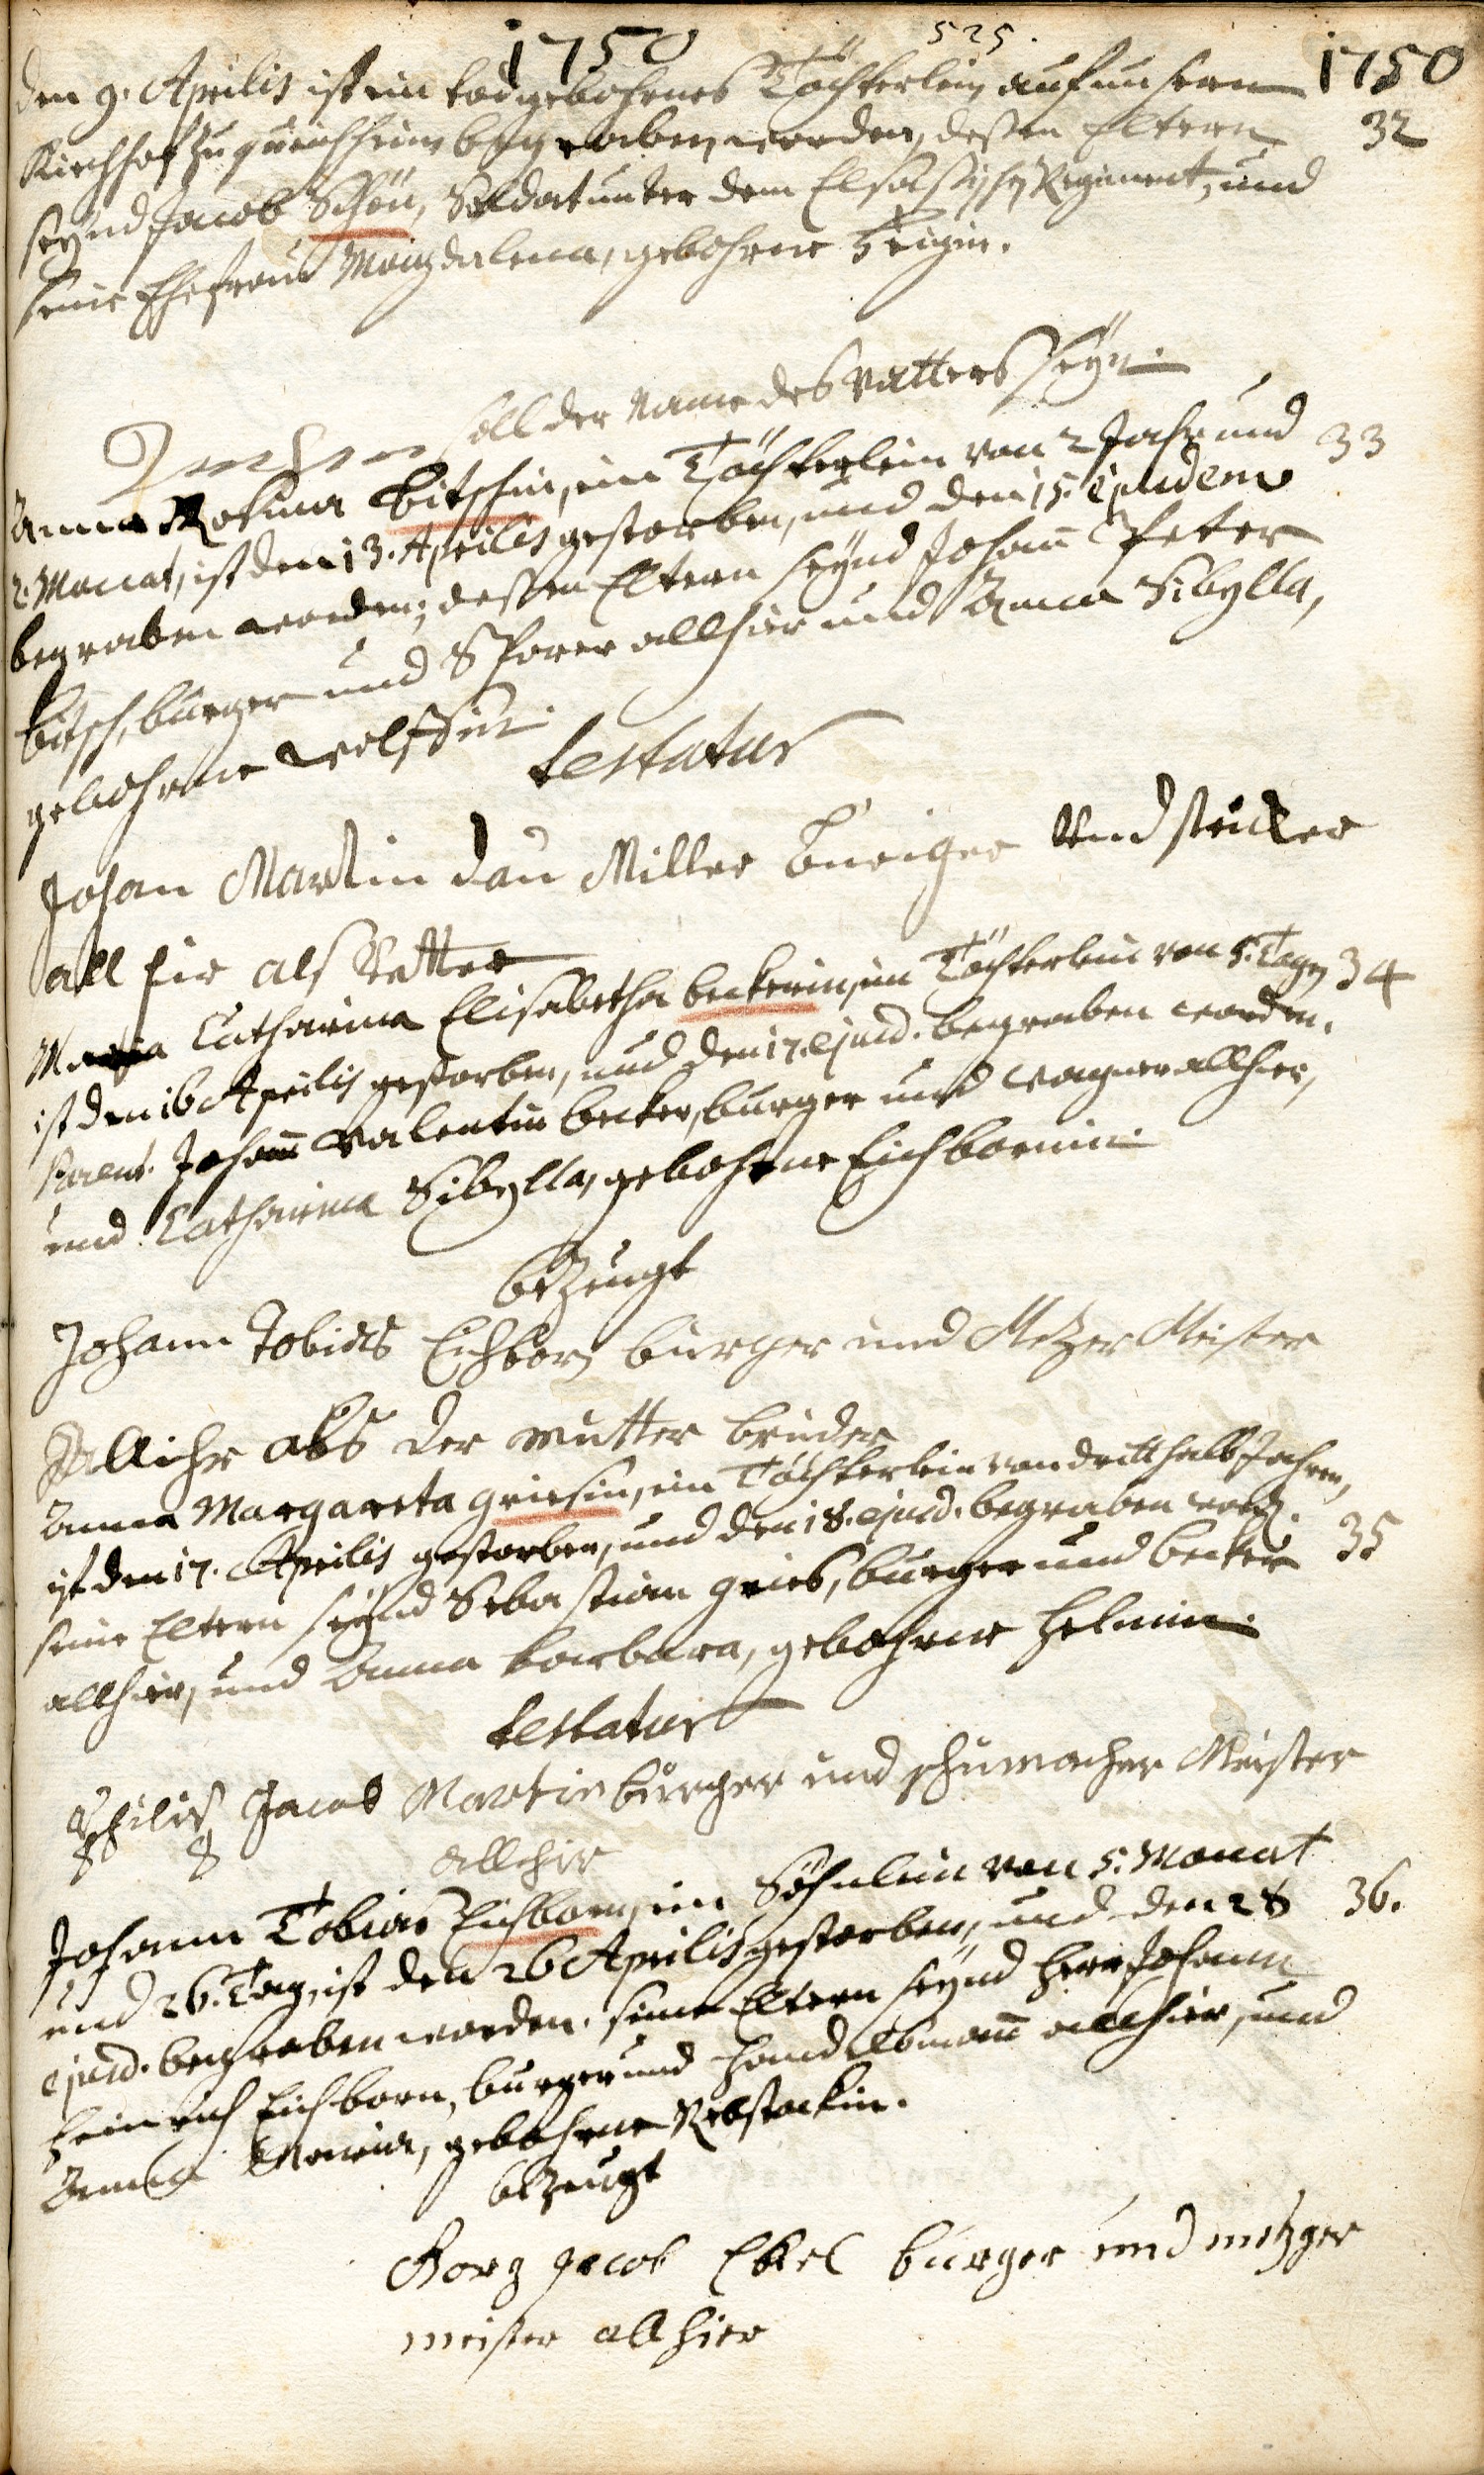 1750 525. 1750
den 9. Aprilis ist ein todgebohrenes Töchterlein auf unserm
Kirchhof zu queichheim begraben worden, dessen Eltern 32
seynd Jacob Schön, Soldat unter dem Elsassischen Regiment, und
seine Ehefrau Magdalena, gebohrne
soll der Name des Vatters seyn.
Anna Rosina Bitschin, ein Töchterlein von 2 Jahr und 33
2. Monat, ist den 13. Aprilis gestorben, und den 15. ejusdem
begraben worden; dessen Eltern seynd Johann Peter
Bitsch, burger und Sporer allhier und Anna Sibylla,
gebohrne Wolffin.
testatur
Johan Martin dau Miller burger und stricker
all hie als Vetter
Maria Catharina Elisabetha beckerin, ein Töchterlein von 5. Tagen 34
ist den 16 Aprilis gestorben, und den 17. ejusd. begraben worden.
Parent. Johann Valentin becker, burger und wagner allhier,
und Catharina Sibylla, gebohrne Eichbornin.
bezeugt
Johann Tobias Eichborn burger und Metzger Meister
Allhier als der mutter bruder
Anna Margareta griesin, ein Töchterlein von dritthalb Jahren,
ist den 17. Aprilis gestorben, und den 18. ejusd. begraben word. 35
seine Eltern seynd Sebastian gries, burger und becker
allhier, und Anna barbara, gebohrne Helmin.
testatur
Philip Jacob Martin burger und schumacher Meister
allhir
Johann Tobias Eichborn, ein Söhnlein von 5. Monat
und 26. Tag, ist den 26 Aprilis gestorben, und den 28 36.
ejusd. begraben worden. seine Eltern seynd Herr Johann
Heinrich Eichborn, burger und Handelsmann allhier, und
Anna Maria, gebohrne Rebstockin.
bezeugt
Gorg Jacob Ebel burger und metzger
meister allhier